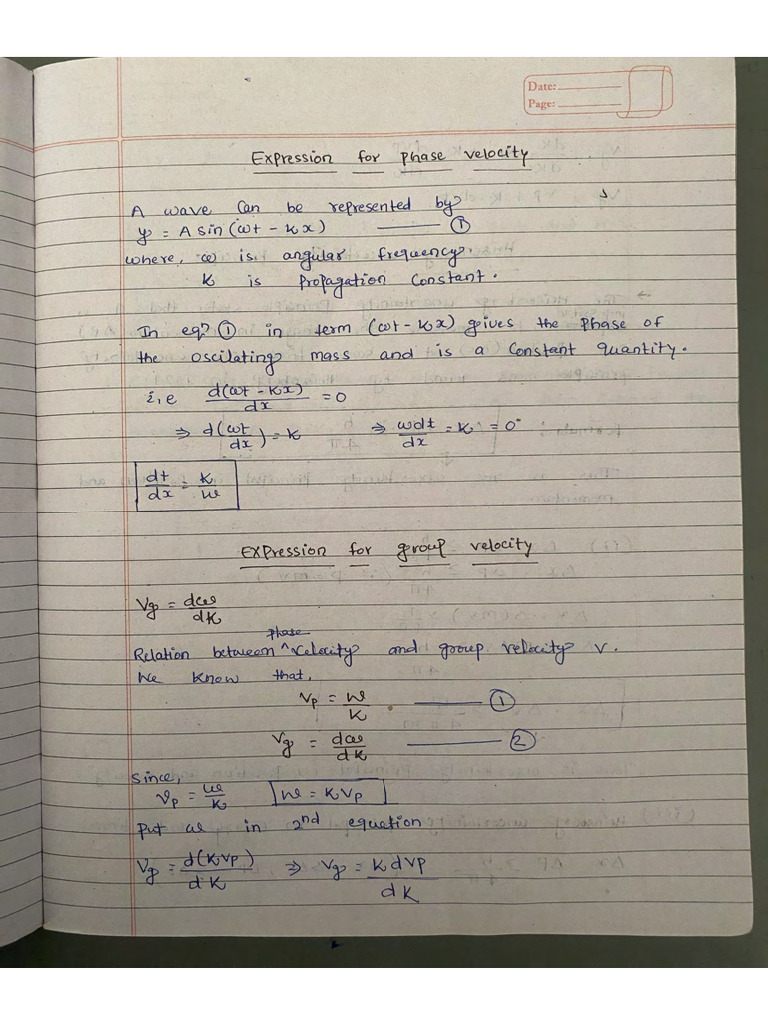 Date:
Page:
Expression for phase velocity
A wave can be represented by
y = A sin (ωt - kx) ——— ①
where, ω is angular frequency.
k is propagation constant.
In eqn ① in term (ωt - kx) gives the phase of
the oscilating mass and is a constant quantity.
i,e d(ωt - kx)/dx = 0
⇒ d(ωt/dx) - k ⇒ ωdt/dx - k = 0
dt/dx = k/ω
Expression for group velocity
Vg = dω/dk
Relation between ^phase velocity and group velocity v.
We know that,
Vp = ω/k ——— ①
Vg = dω/dk ——— ②
Since,
Vp = ω/k ω = kVp
Put ω in 2nd equation
Vg = d(kVp)/dk ⇒ Vg = kdVp/dk